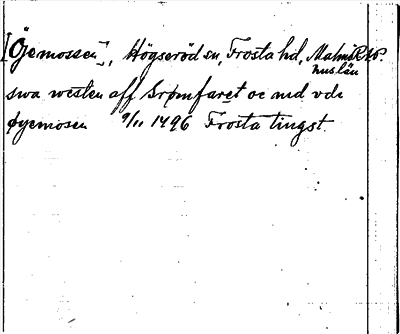 [Öjemossen], Högseröd sn, Frosta hd, Malmöhus län
swa westen aff Grømfaret oc ned vdi
øyemosen 9/11 1496 Frosta tingst.